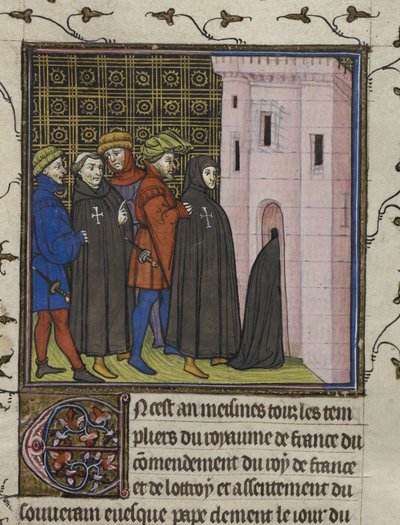 En cest an meismes touz les tem
pliers du royaume de france du
cõmendement du roy de france
et de lottroy et assentement du
souuerain euesque pape clement le iour du